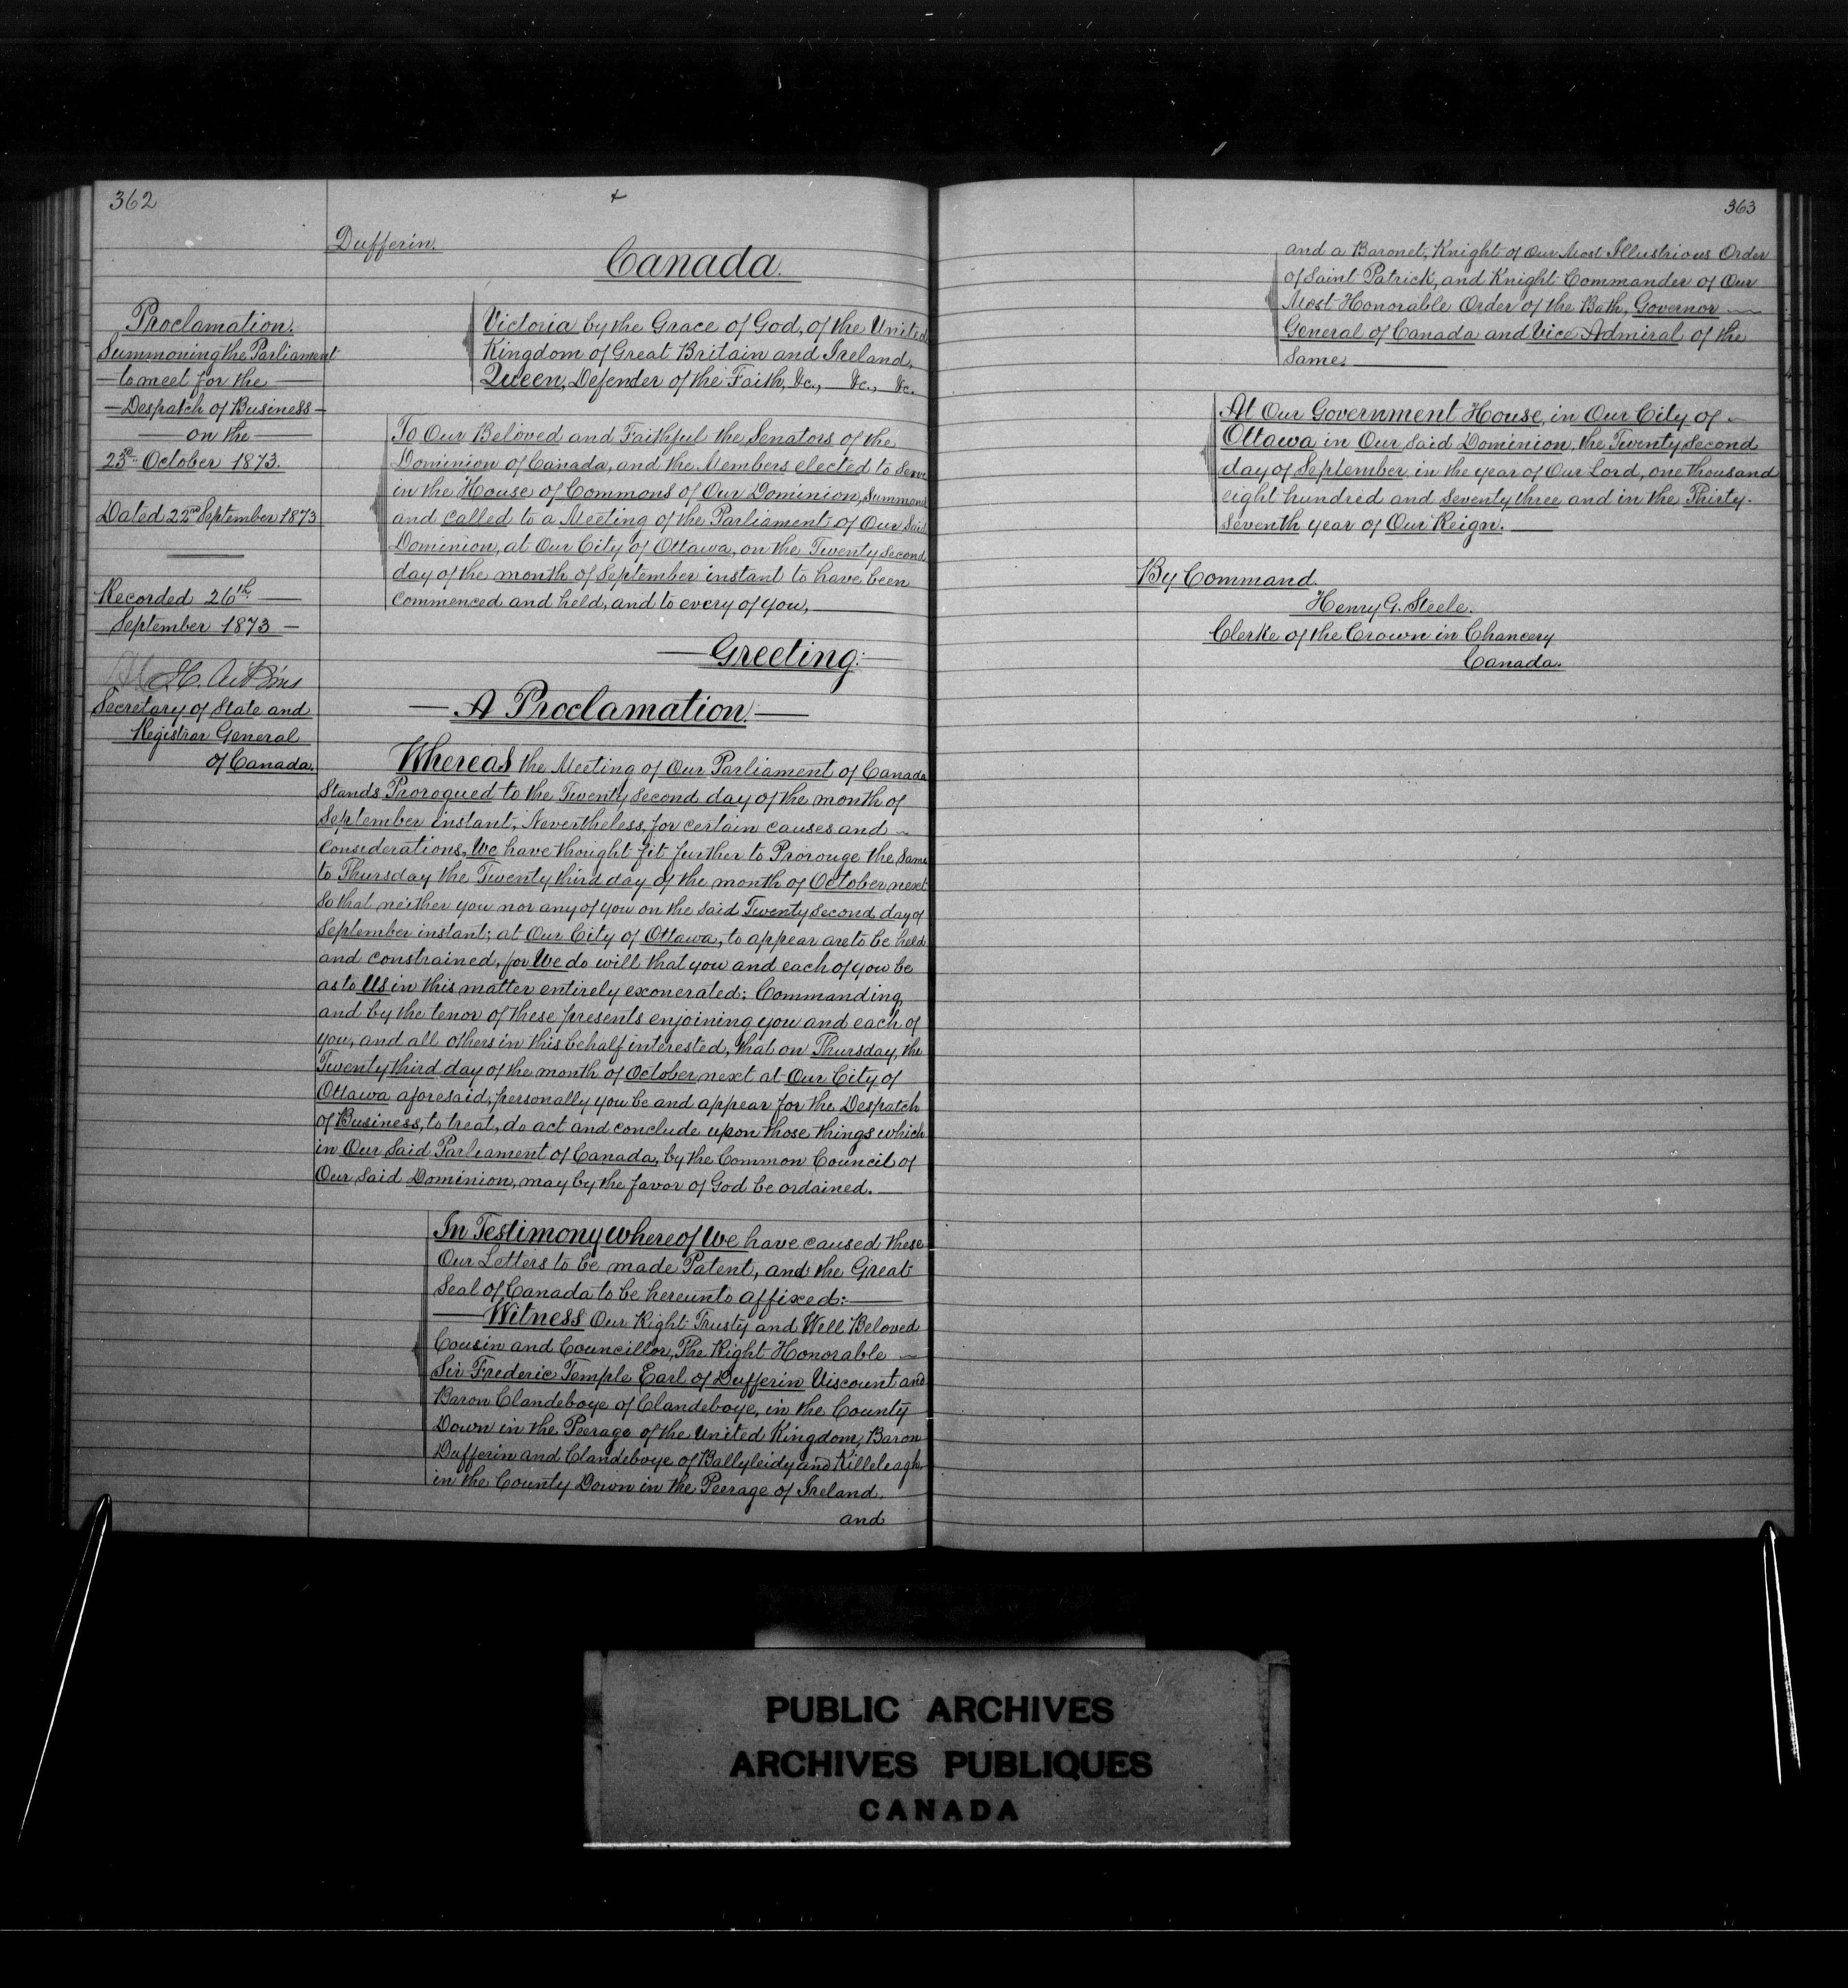 362
Dufferin.
Canada.
Proclamation.
Summoning the Parliament
to meet for the
Despatch of Business
on the
23rd October 1873.
Dated 22nd September 1873
Recorded 26th
September 1873
Secretary of State and
Registrar General
of Canada.
Victoria by the Grace of God, of the United
Kingdom of Great Britain and Ireland,
Queen, Defender of the Faith, &c., &c., &c.
To Our Beloved and Faithful the Senators of the
Dominion of Canada, and the Members elected to Serve
in the House of Commons of Our Dominion, Summoned
and called to a Meeting of the Parliament of Our Said
Dominion, at Our City of Ottawa, on the Twenty Second
day of the month of September instant to have been
Commenced and held, and to every of you,
Greeting:
A Proclamation.
Whereas the Meeting of Our Parliament of Canada
Stands Prorogued to the Twenty Second day of the month of
September instant, Nevertheless, for certain causes and
Considerations, We have thought fit further to Prorouge the Same
to Thursday the Twenty third day of the month of October next
So that neither you nor any of you on the said Twenty Second day of
September instant; at Our City of Ottawa, to appear are to be held
and constrained, for We do will that you and each of you be
as to Us in this matter entirely exonerated; Commanding,
and by the tenor of these presents enjoining you and each of
you, and all others in this behalf interested, that on Thursday, the
Twenty third day of the month of October next at Our City of
Ottawa aforesaid, personally you be and appear for the Despatch
of Business, to treat, do act and conclude upon those things which
in Our Said Parliament of Canada, by the Common Council of
Our Said Dominion, may by the favor of God be ordained.
In Testimony whereof We have caused these
Our Letters to be made Patent, and the Great
Seal of Canada to be hereunto affixed:
Witness Our Right Trusty and Well Beloved
Cousin and Councillor, The Right Honorable
Sir Frederic Temple Earl of Dufferin Viscount and
Baron Clandeboye of Clandeboye, in the County
Down in the Peerage of the United Kingdom, Baron
Dufferin and Clandeboye of Ballyleidy and Killeleagh
in the County Down in the Peerage of Ireland.
and
363
and a Baronet, Knight of Our Most Illustrious Order
of Saint Patrick, and Knight Commander of Our
Most Honorable Order of the Bath, Governor
General of Canada and Vice Admiral of the
Same.
At Our Government House, in Our City of
Ottawa in Our Said Dominion, the Twenty Second
day of September in the year of Our Lord, one thousand
eight hundred and Seventy three and in the Thirty-
Seventh year of Our Reign.
By Command.
Henry G. Steele.
Clerke of the Crown in Chancery
Canada.
PUBLIC ARCHIVES
ARCHIVES PUBLIQUES
CANADA